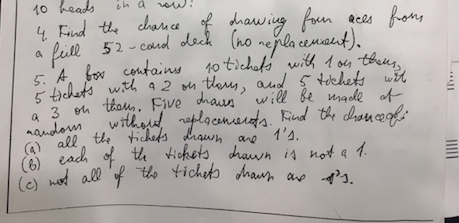 10 heads in a row.
4. Find the chance of drawing four aces from
a full 52-card deck (no replacement).
5. A box contains 10 tickets with 1 on them,
5 tickets with a 2 on them, and 5 tickets with
a 3 on them. Five draws will be made at
random without replacements. Find the chance of:
(a) all the tickets drawn are 1's.
(b) each of the tickets drawn is not a 1.
(c) not all of the tickets drawn are 1's.